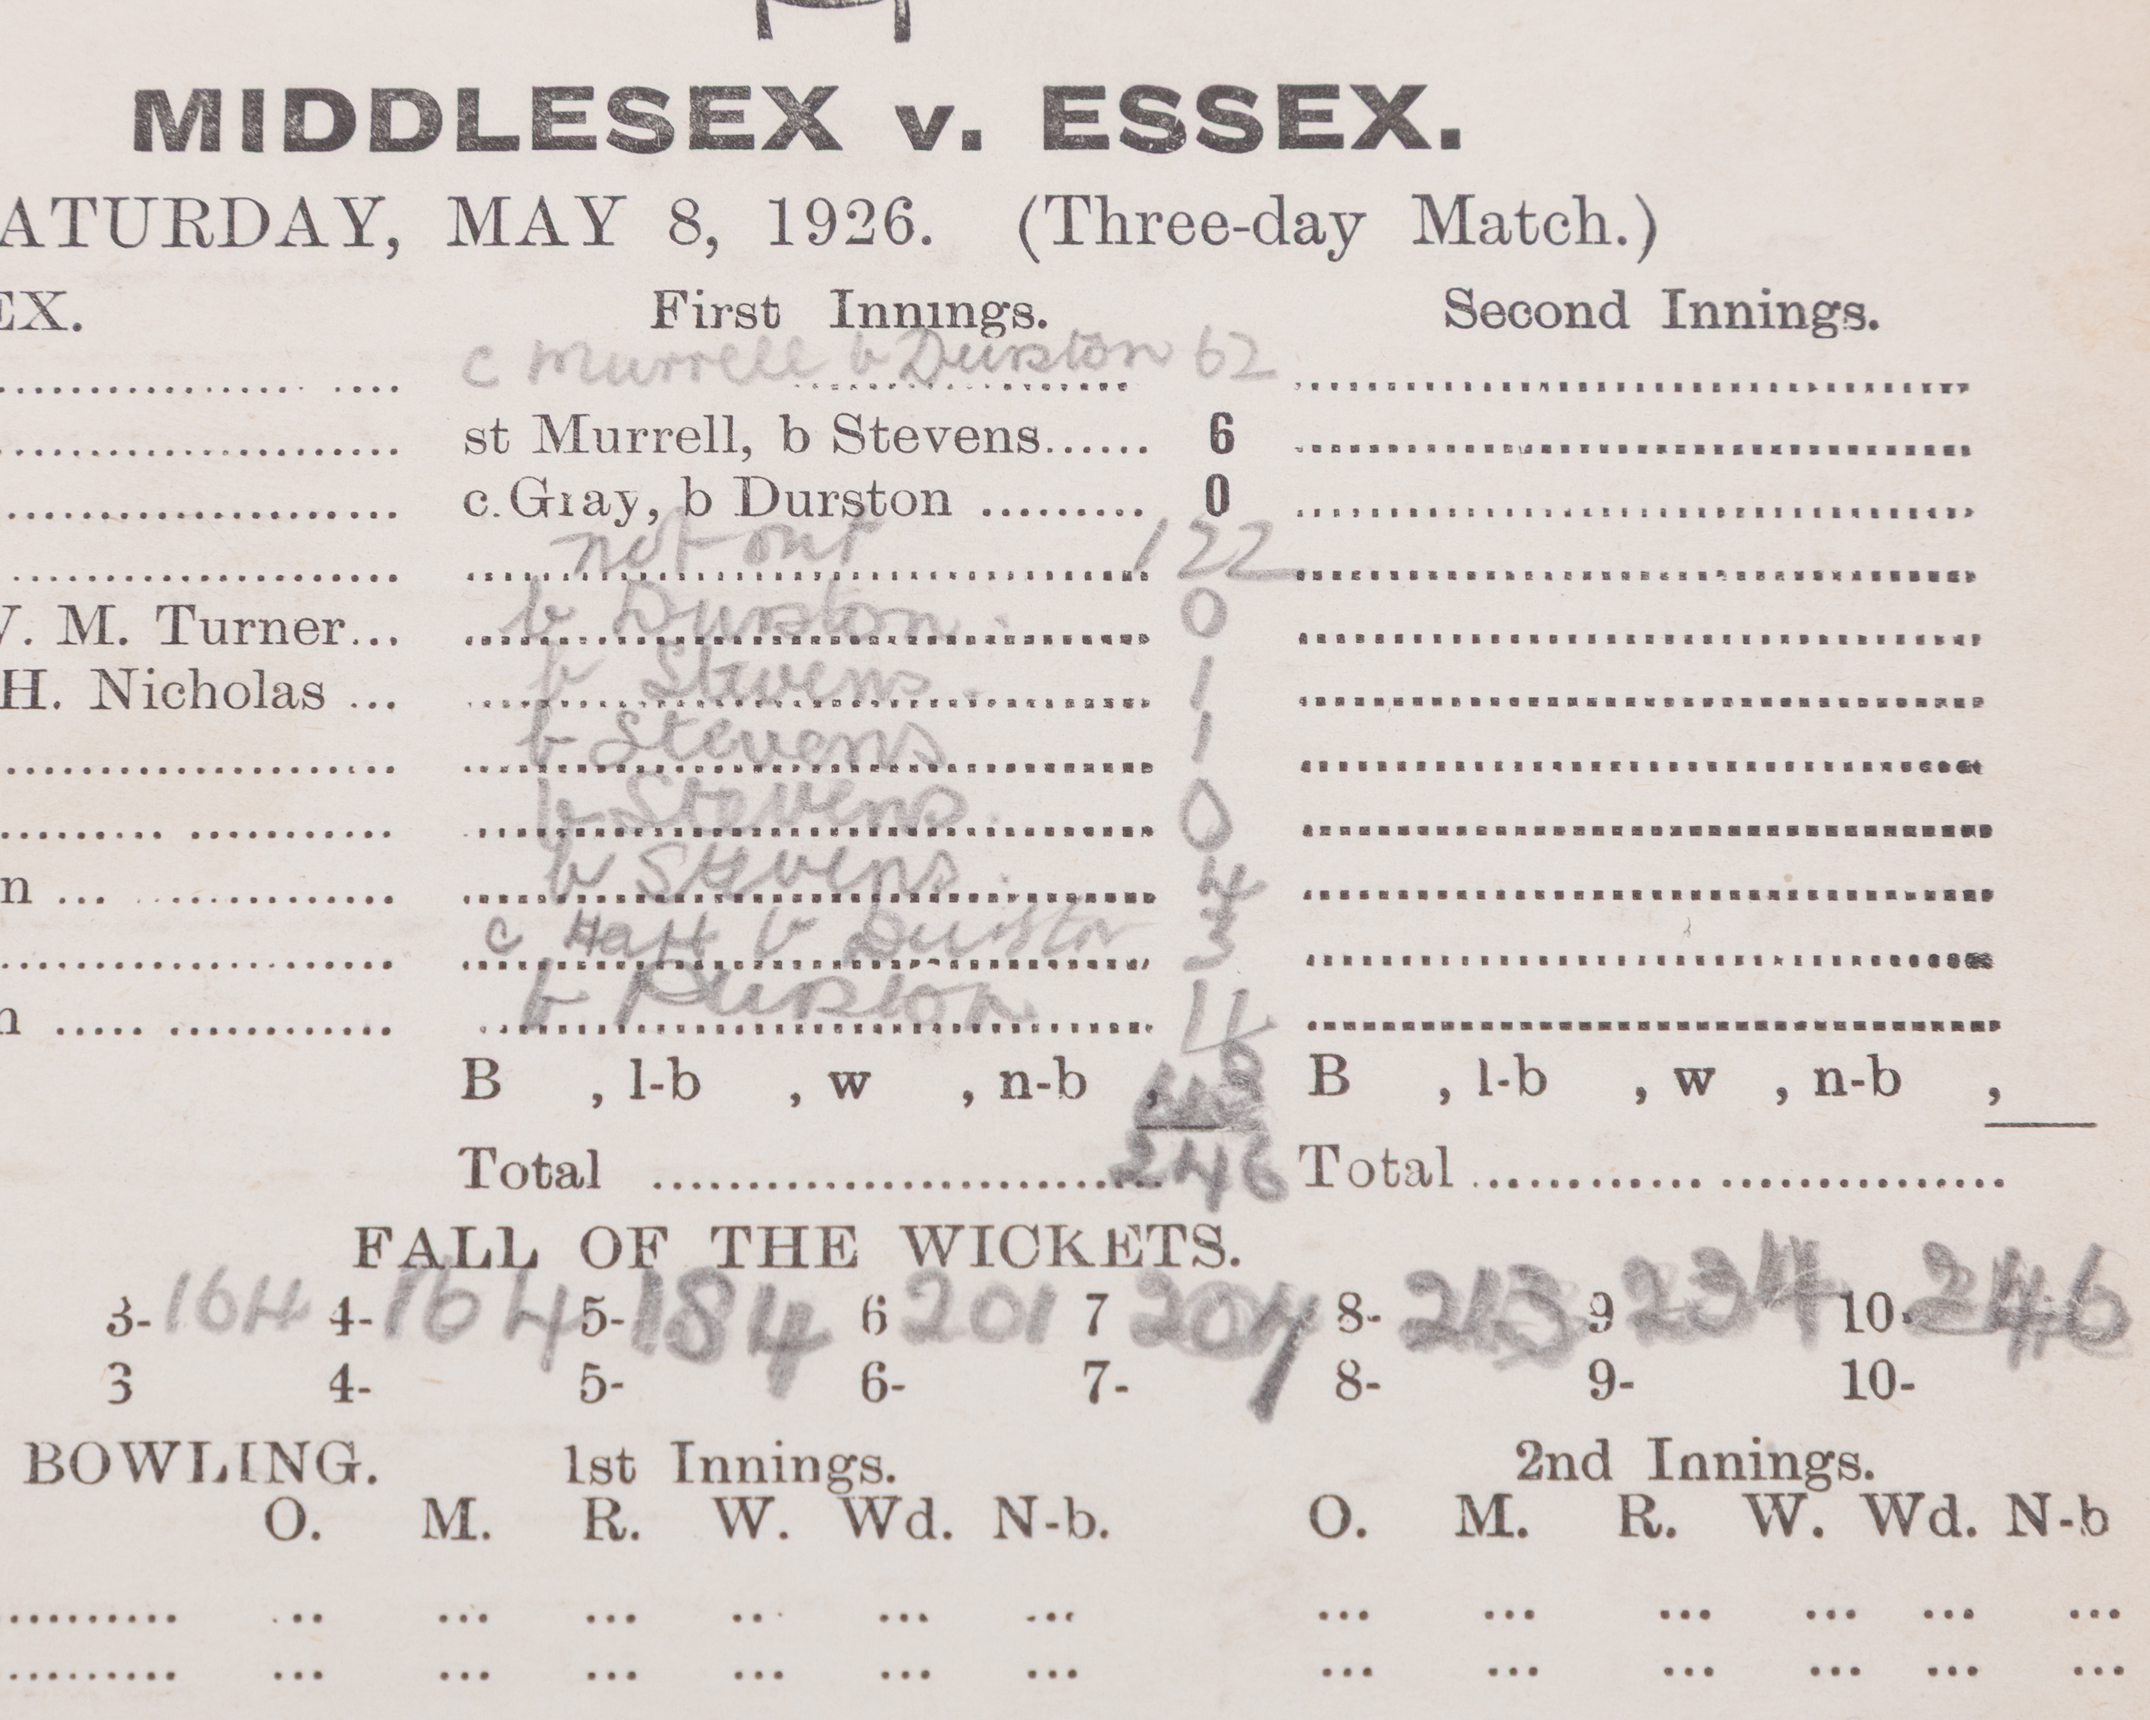 MIDDLESEX v. ESSEX.
ATURDAY, MAY 8, 1926. (Three-day Match.)
EX. First Innings. Second Innings.
c Murrell b Durston 62
st Murrell, b Stevens...... 6
c.Gray, b Durston ......... 0
not out 122
V. M. Turner... b Durston. 0
H. Nicholas ... b Stevens. 1
b Stevens 1
b Stevens. 0
n ... b Stevens. 4
c b Durston 3
b Durston 11
B , l-b , w , n-b , B , l-b , w , n-b ,
Total 246 Total
FALL OF THE WICKETS.
3-164 4-164 5-184 6 201 7 207 8-213 9 234 10-246
3 4- 5- 6- 7- 8- 9- 10-
BOWLING. 1st Innings. 2nd Innings.
O. M. R. W. Wd. N-b. O. M. R. W. Wd. N-b